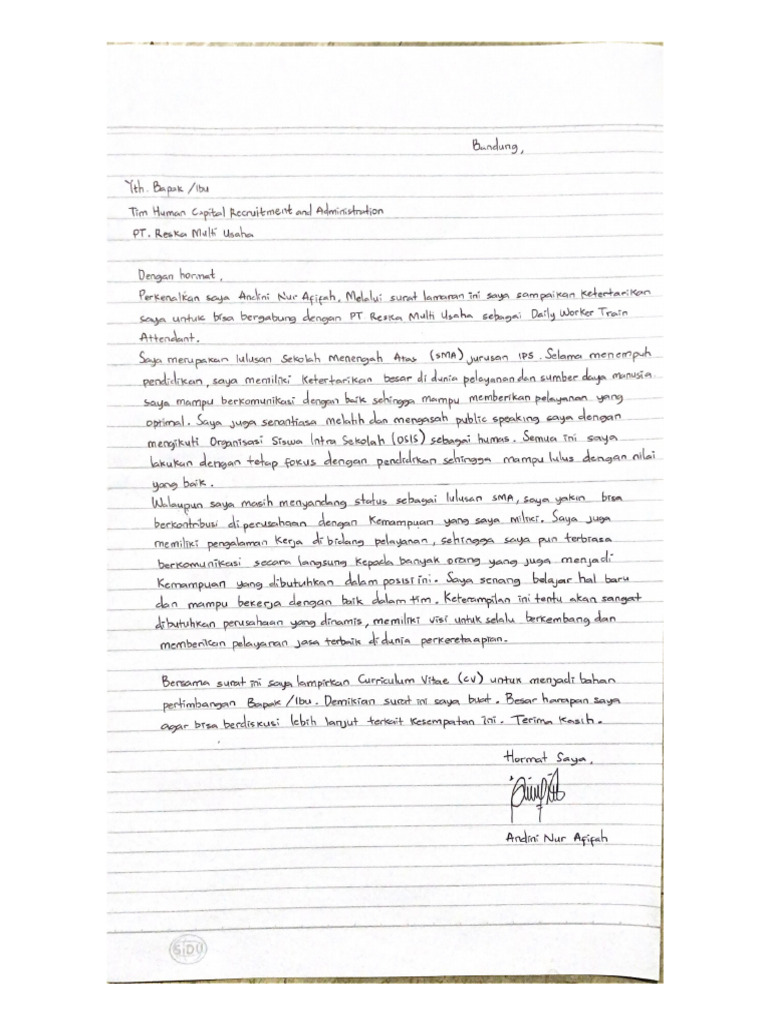 Bandung,
Yth. Bapak / Ibu
Tim Human Capital Recruitment and Administration
PT. Reska Multi Usaha
Dengan hormat,
Perkenalkan saya Andini Nur Afifah. Melalui surat lamaran ini saya sampaikan ketertarikan
saya untuk bisa bergabung dengan PT Reska Multi Usaha sebagai Daily Worker Train
Attendant.
Saya merupakan lulusan Sekolah Menengah Atas (SMA) jurusan IPS. Selama menempuh
pendidikan, saya memiliki ketertarikan besar di dunia pelayanan dan sumber daya manusia
saya mampu berkomunikasi dengan baik sehingga mampu memberikan pelayanan yang
optimal. Saya juga senantiasa melatih dan mengasah public speaking saya dengan
mengikuti Organisasi Siswa Intra Sekolah (OSIS) sebagai humas. Semua ini saya
lakukan dengan tetap fokus dengan pendidikan sehingga mampu lulus dengan nilai
yang baik.
Walaupun saya masih menyandang status sebagai lulusan SMA, saya yakin bisa
berkontribusi di perusahaan dengan kemampuan yang saya miliki. Saya juga
memiliki pengalaman kerja di bidang pelayanan, sehingga saya pun terbiasa
berkomunikasi secara langsung kepada banyak orang yang juga menjadi
kemampuan yang dibutuhkan dalam posisi ini. Saya senang belajar hal baru
dan mampu bekerja dengan baik dalam tim. Keterampilan ini tentu akan sangat
dibutuhkan perusahaan yang dinamis, memiliki visi untuk selalu berkembang dan
memberikan pelayanan jasa terbaik di dunia perkeretaapian.
Bersama surat ini saya lampirkan Curriculum Vitae (CV) untuk menjadi bahan
pertimbangan Bapak / Ibu. Demikian surat ini saya buat. Besar harapan saya
agar bisa berdiskusi lebih lanjut terkait kesempatan ini. Terima kasih.
Hormat Saya,
Andini Nur Afifah
SIDU